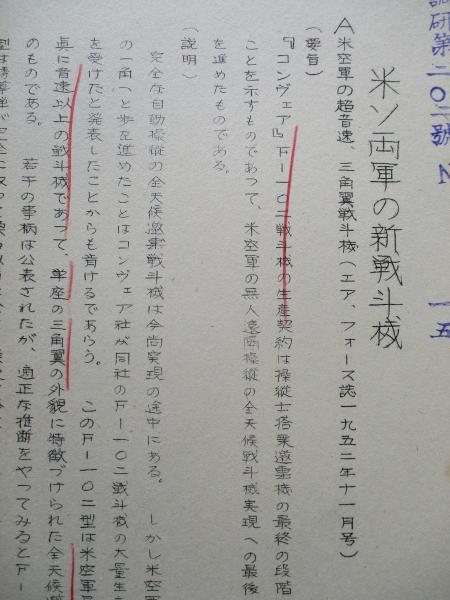 研第二〇二號 N
一五
米ソ両軍の新戦斗機
A米空軍の超音速、三角翼戦斗機(エア、フォース誌一九五二年十一月号)
(要旨)
『コンヴェア』F一一〇二戦斗機の生産契約は操縦士搭業邀撃機の最終の段階
ことを示すものであつて、米空軍の無人遠隔操縦の全天候戦斗機実現への最後
を進めたものである。
(説明)
完全な自動操縦の全天候邀撃戦斗機は今尚実現の途中にある。 しかし米空軍
の一角へと歩を進めたことはコンヴェア社が同社のF一一〇二戦斗機の大量生
を受けたと発表したことからも肯けるであらう。 このF一一〇二型は米空軍
眞に音速以上の戦斗機であつて、単座の三角翼の外貌に特徴づけられた全天候
のものである。 若干の事柄は公表されたが、適正な推断をやつてみるとF一